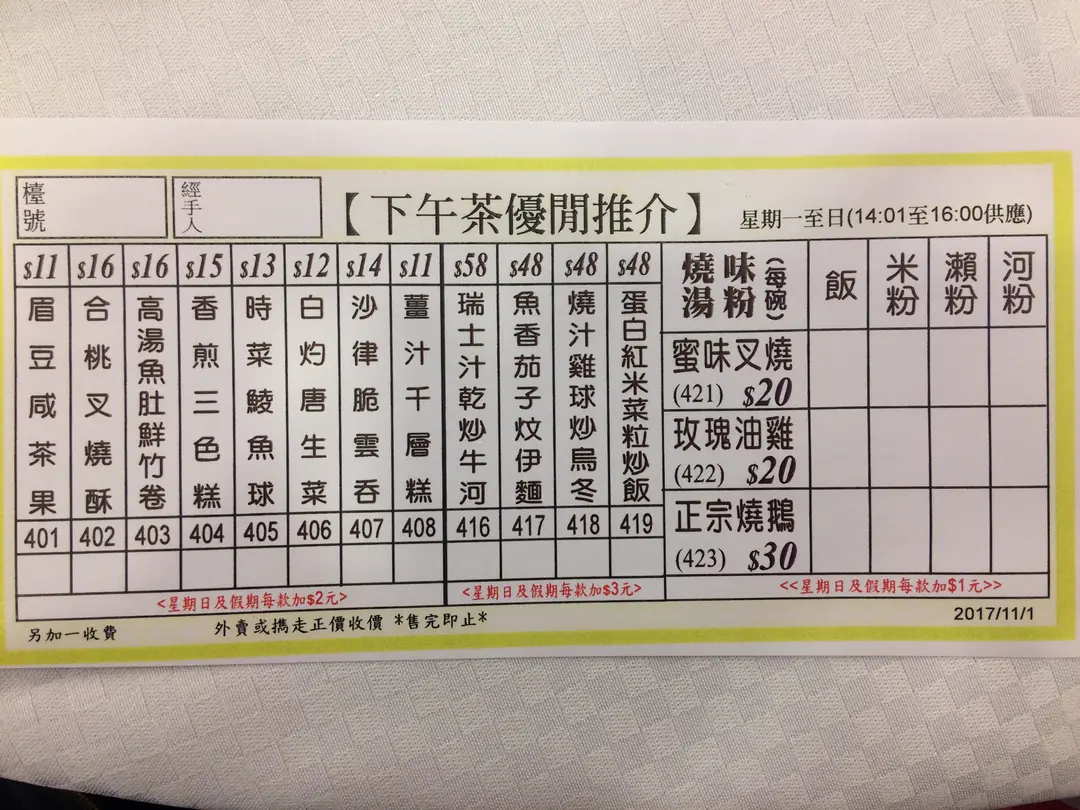 檯號
經手人
【下午茶優閒推介】
星期一至日(14:01至16:00供應)
$11 $16 $16 $15 $13 $12 $14 $11 $58 $48 $48 $48
眉豆咸茶果
合桃叉燒酥
高湯魚肚鮮竹卷
香煎三色糕
時菜鯪魚球
白灼唐生菜
沙律脆雲吞
薑汁千層糕
瑞士汁乾炒牛河
魚香茄子炆伊麵
燒汁雞球炒烏冬
蛋白紅米菜粒炒飯
401 402 403 404 405 406 407 408 416 417 418 419
<星期日及假期每款加$2元>
<星期日及假期每款加$3元>
燒味湯粉(每碗)
飯
米粉
瀨粉
河粉
蜜味叉燒
(421) $20
玫瑰油雞
(422) $20
正宗燒鵝
(423) $30
<<星期日及假期每款加$1元>>
另加一收費
外賣或攜走正價收價 *售完即止*
2017/11/1